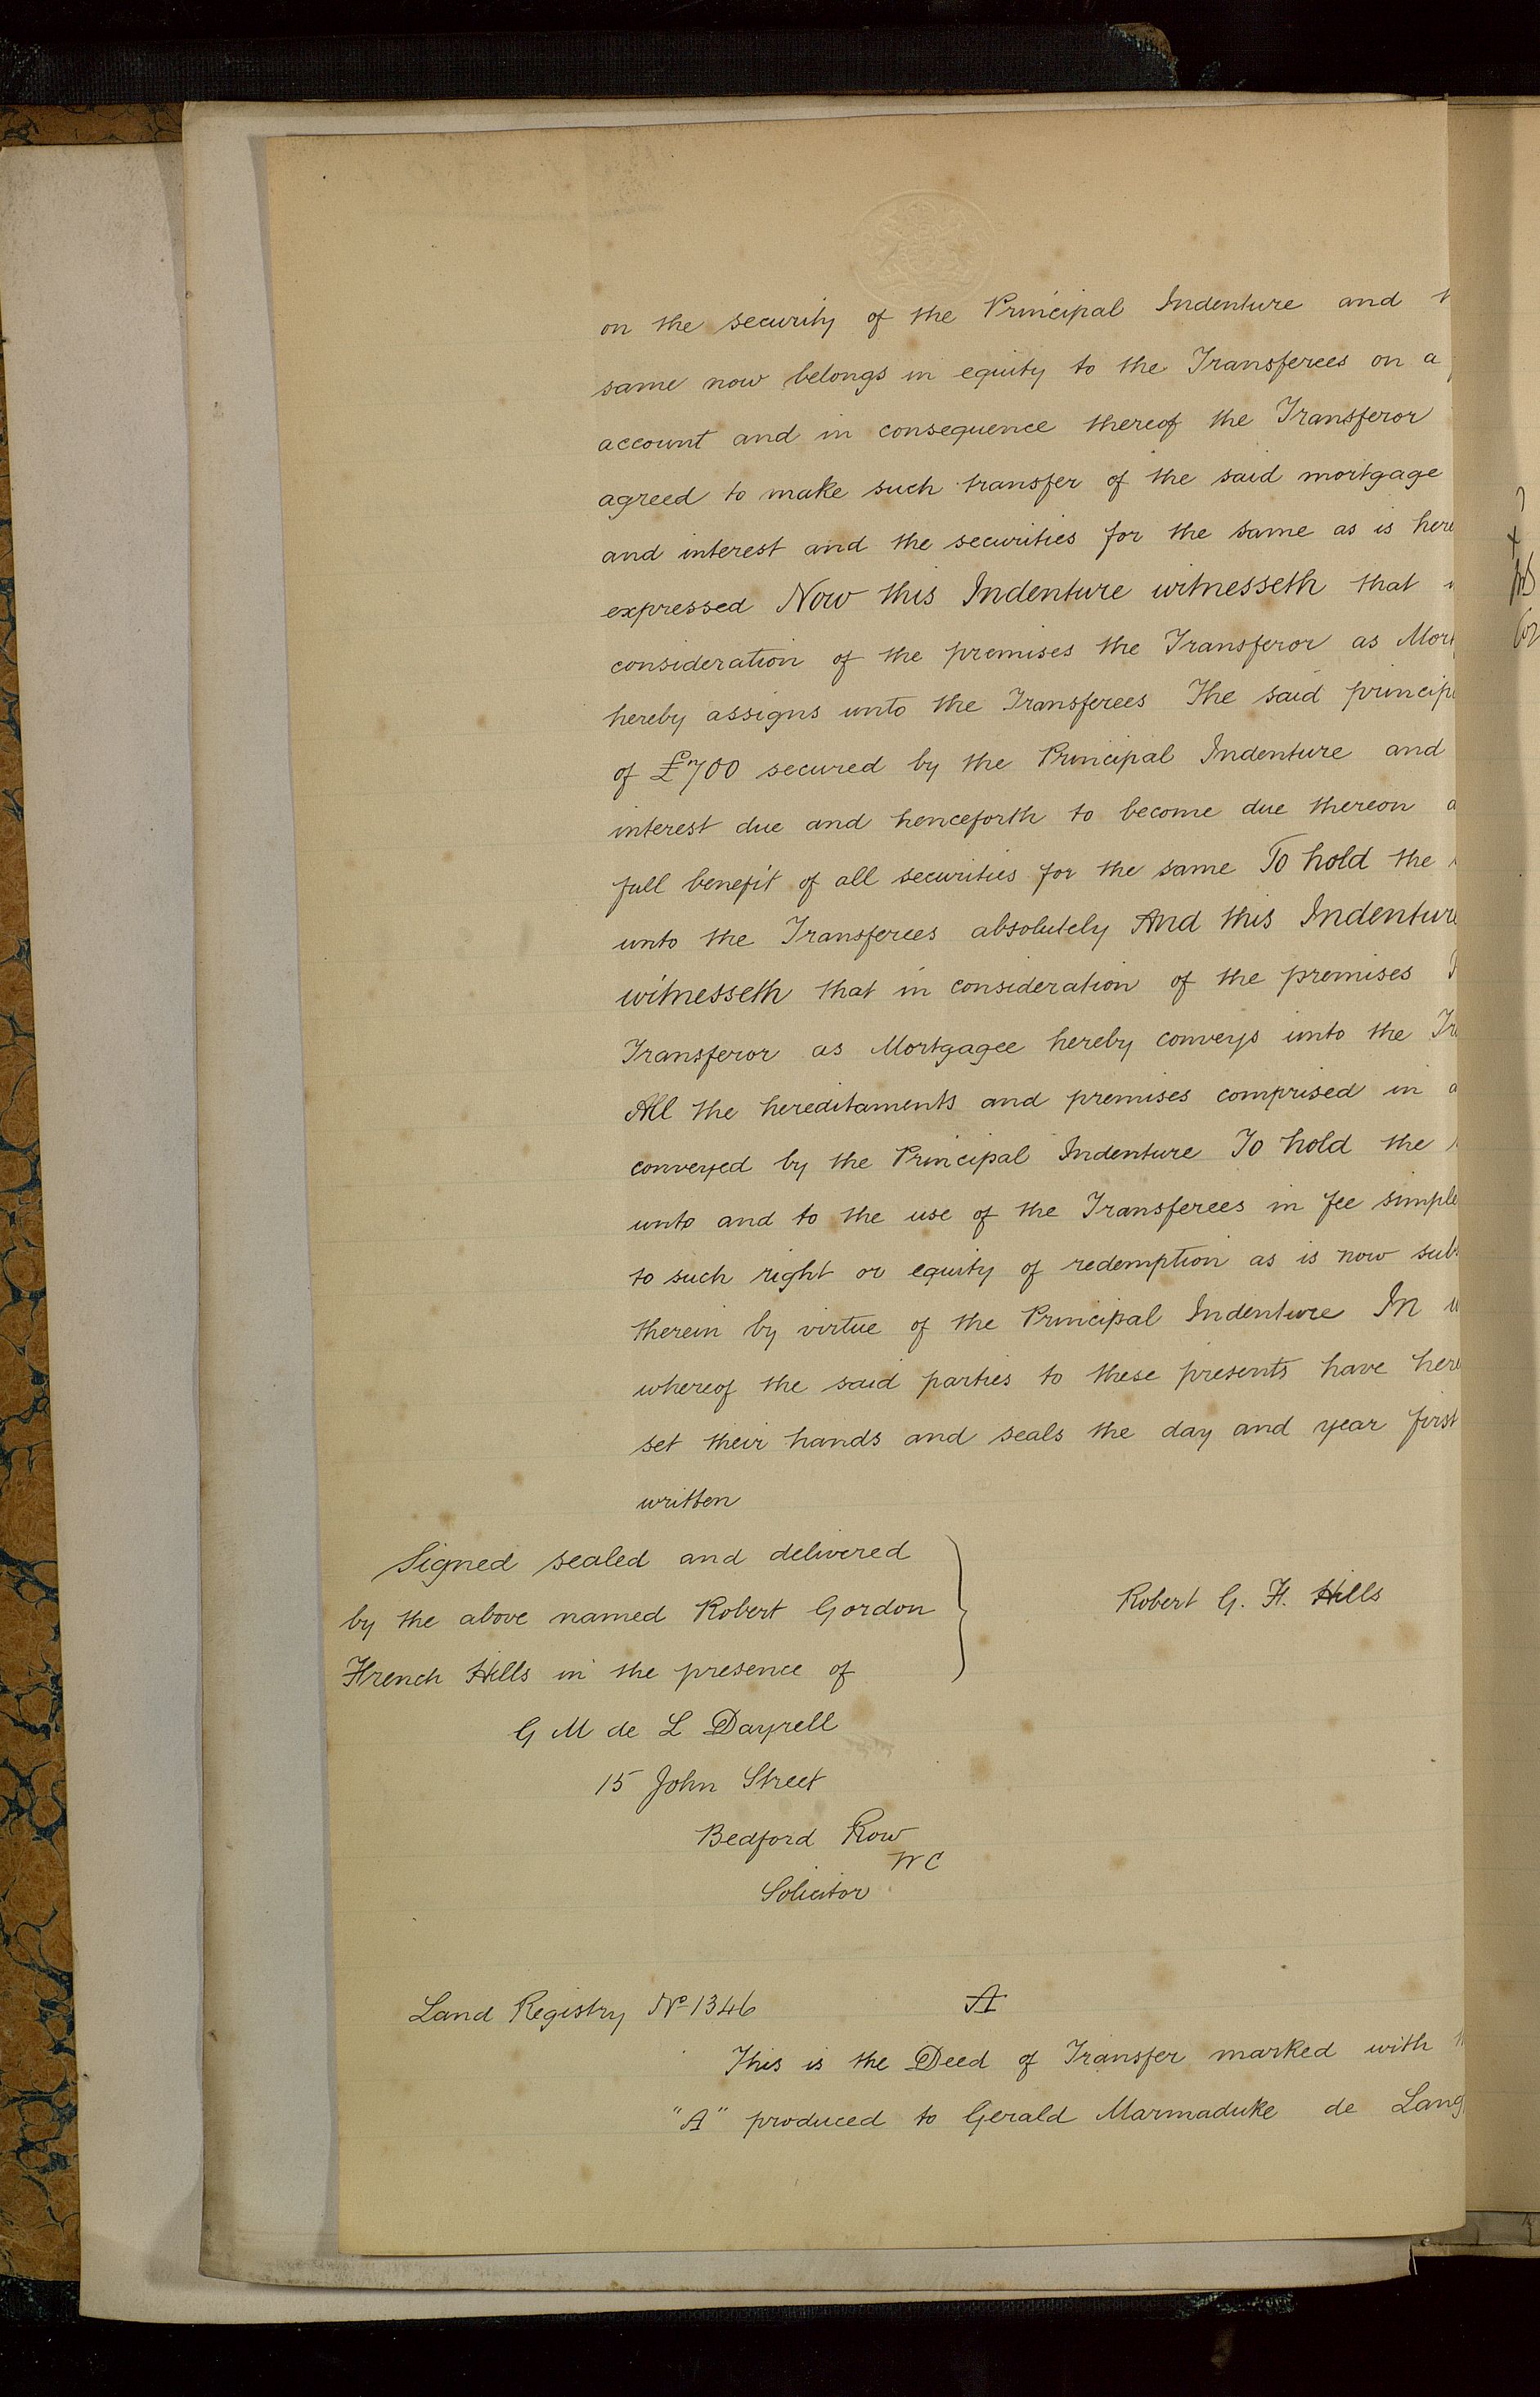 on the security of the Principal Indenture and
same now belongs in equity to the Transferees on a
account and in consequence thereof the Transferor
agreed to make such transfer of the said mortgage
and interest and the securities for the same as is here
expressed Now this Indenture witnesseth that
consideration of the premises the Transferor as Mort
hereby assigns unto the Transferees The said princip
of £700 secured by the Principal Indenture and
interest due and henceforth to become due thereon a
full benefit of all securities for the same To hold the
unto the Transferees absolutely And this Indenture
witnesseth that in consideration of the premises
Transferor as Mortgagee hereby conveys unto the Tra
All the hereditaments and premises comprised in a
conveyed by the Principal Indenture To hold the
unto and to the use of the Transferees in fee simple
to such right or equity of redemption as is now subs
therein by virtue of the Principal Indenture In
whereof the said parties to these presents have here
set their hands and seals the day and year first
written
Signed sealed and delivered
by the above named Robert Gordon
Ffrench Hills in the presence of
Robert G. Ff. Hills
G M de L Dayrell
15 John Street
Bedford Row
WC
Solicitor
Land Registry No 1346 A
This is the Deed of Transfer marked with
"A" produced to Gerald Marmaduke de Lang